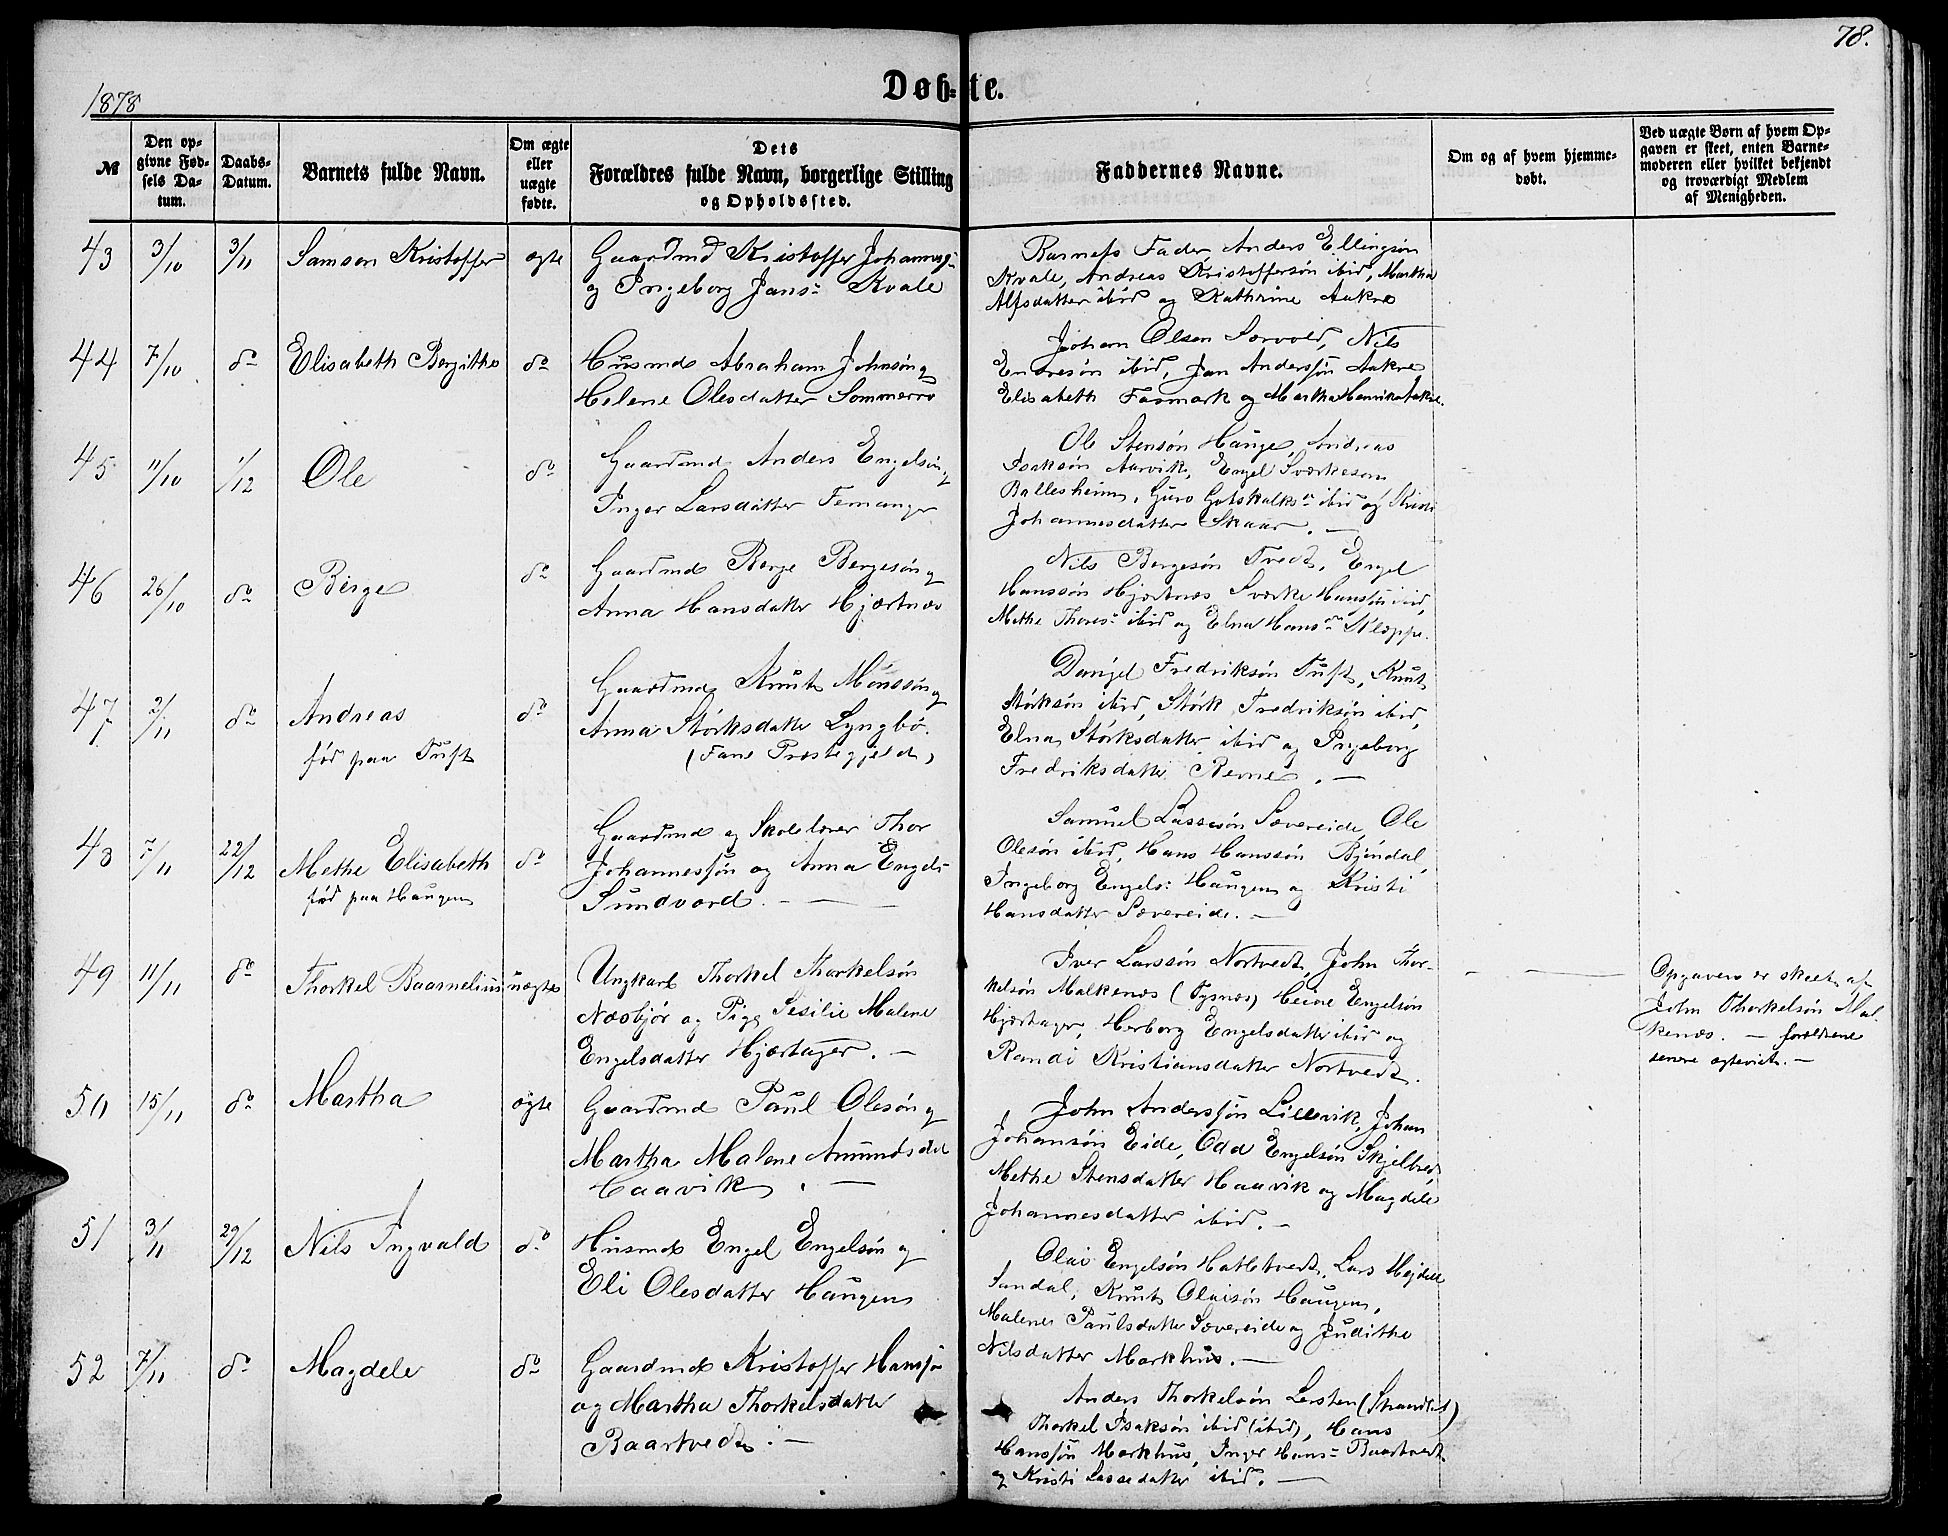 78.
1878
Døb-te.
№
Den op-
givne Fød-
sels Da-
tum.
Daabs-
Datum.
Barnets fulde Navn.
Om ægte
eller
uægte
fødte.
Dets
Forældres fulde Navn, borgerlige Stilling
og Opholdssted.
Faddernes Navne.
Om og af hvem hjemme-
døbt.
Ved uægte Børn af hvem Op-
gaven er skeet, enten Barne-
moderen eller hvilket bekjendt
og troværdigt Medlem
af Menigheden.
43 3/10 3/11 Samson Kristoffer ægte
Gaardmd Kristoffer Johannes-
og Ingeborg Jans- Kvale
Barnets Fader, Anders Ellingsøn
Kvale, Andreas Kristoffersøn ibid, Martha
Alfsdatter ibid og Kathrine Aakre
44 7/10 do Elisabeth Bergithe do
Husmd Abraham Johnsøn og
Helene Olesdatter Sommerro
Johan Olsen Sørvold, Nils
Endresøn ibid, Jan Anderssøn Aakre
Elisabeth Fasmark og Martha Henriks Aakre.
45 11/10 1/12 Ole do
Gaardmd Anders Engelsøn og
Inger Larsdatter Femanger
Ole Stensøn Hauge, Andreas
Isaksøn Aarvik, Engel Sværkesøn
Ballesheim, Guro Gotskalks- ibid og Kristi
Johannesdatter Skaar. —
46 26/10 do Børge do
Gaardmd Børge Børgesøn og
Anna Hansdatter Hjørtnæs
Nils Børgesøn Tvedt, Engel
Hanssøn Hjørtnæs Sværke Hanssøn ibid,
Methe Thores- ibid og Elna Hans- Kleppe.
47 2/11 do Andreas do
født paa Tuft
Gaardmd Knut Monssøn og
Anna Størksdatter Lyngbø.
(Fane Præstegjeld)
Daniel Fredriksøn Tuft, Knut
Størksøn ibid, Størk Fredriksøn ibid,
Elna Størksdatter ibid og Ingeborg
Fredriksdatter Revne. —
48 7/11 22/12 Methe Elisabeth do
født paa Haugen
Gaardmd og Skolelærer Thor
Johannessøn og Anna Engels-
Sundvord. — —
Samuel Lassesøn Sævereide, Ole
Olesøn ibid, Hans Hanssøn Bjøndal,
Ingeborg Engels: Haugen og Kristi
Hansdatter Sævereide. —
49 11/11 do Thorkel Baarnelius uægte
Ungkarl Thorkel Thorkelsøn
Næsbjør og Pige Sesilie Malene
Engelsdatter Hjørtager. —
Iver Larssøn Nortvedt, John Thor-
kelsøn Malkenæs (Tysnæs) Heine Engelsøn
Hjørtager, Herborg Engelsdatter ibid og
Randi Kristiansdatter Nortvedt.
Opgaven er skeet af
John Thorkelsøn Mal-
kenæs. — forældrene
senere ægteviet. —
50 15/11 do Martha ægte
Gaardmd Paul Olesøn og
Martha Malene Amundsdat
Haavik. —
John Anderssøn Lillevik, Johan
Johansøn Eide, Odd Engelsøn Skjelbred
Methe Stensdatter Haavik og Magdele
Johannesdatter ibid. —
51 3/11 29/12 Nils Ingvald do
Husmd Engel Engelsøn og
Eli Olesdatter Haugen
Olai Engelsøn Hatletvedt, Lars Hejdell
Sandal, Knut Olaisøn Haugen,
Malene Paulsdatter Sævereide og Judithe
Nilsdatter Markhus. —
52 7/11 do Magdele do
Gaardmd Kristoffer Hanssø
og Martha Thorkelsdatter
Baartvedt. —
Anders Thorkelsøn Lersten (Strandebt)
Thorkel Isaksøn ibid (ibid), Hans
Hanssøn Markhus, Inger Hans- Baartvedt
og Kristi Lassedatter ibid. —